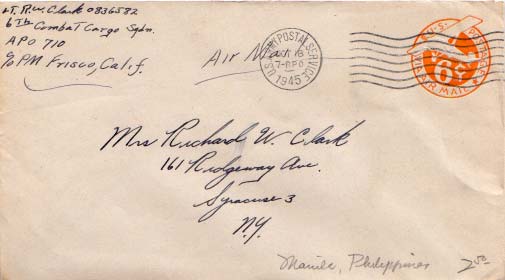 Lt. R.W. Clark 0836582
6th Combat Cargo Sqdn.
APO 710
c/o PM Frisco, Calif.
Air Mail
U.S. ARMY POSTAL SERVICE
OCT 18
7-APO
1945
U.S. POSTAGE
6¢
VIA AIR MAIL
Mrs Richard W. Clark
161 Ridgeway Ave.
Syracuse 3
N.Y.
Manila, Philippines
2.50